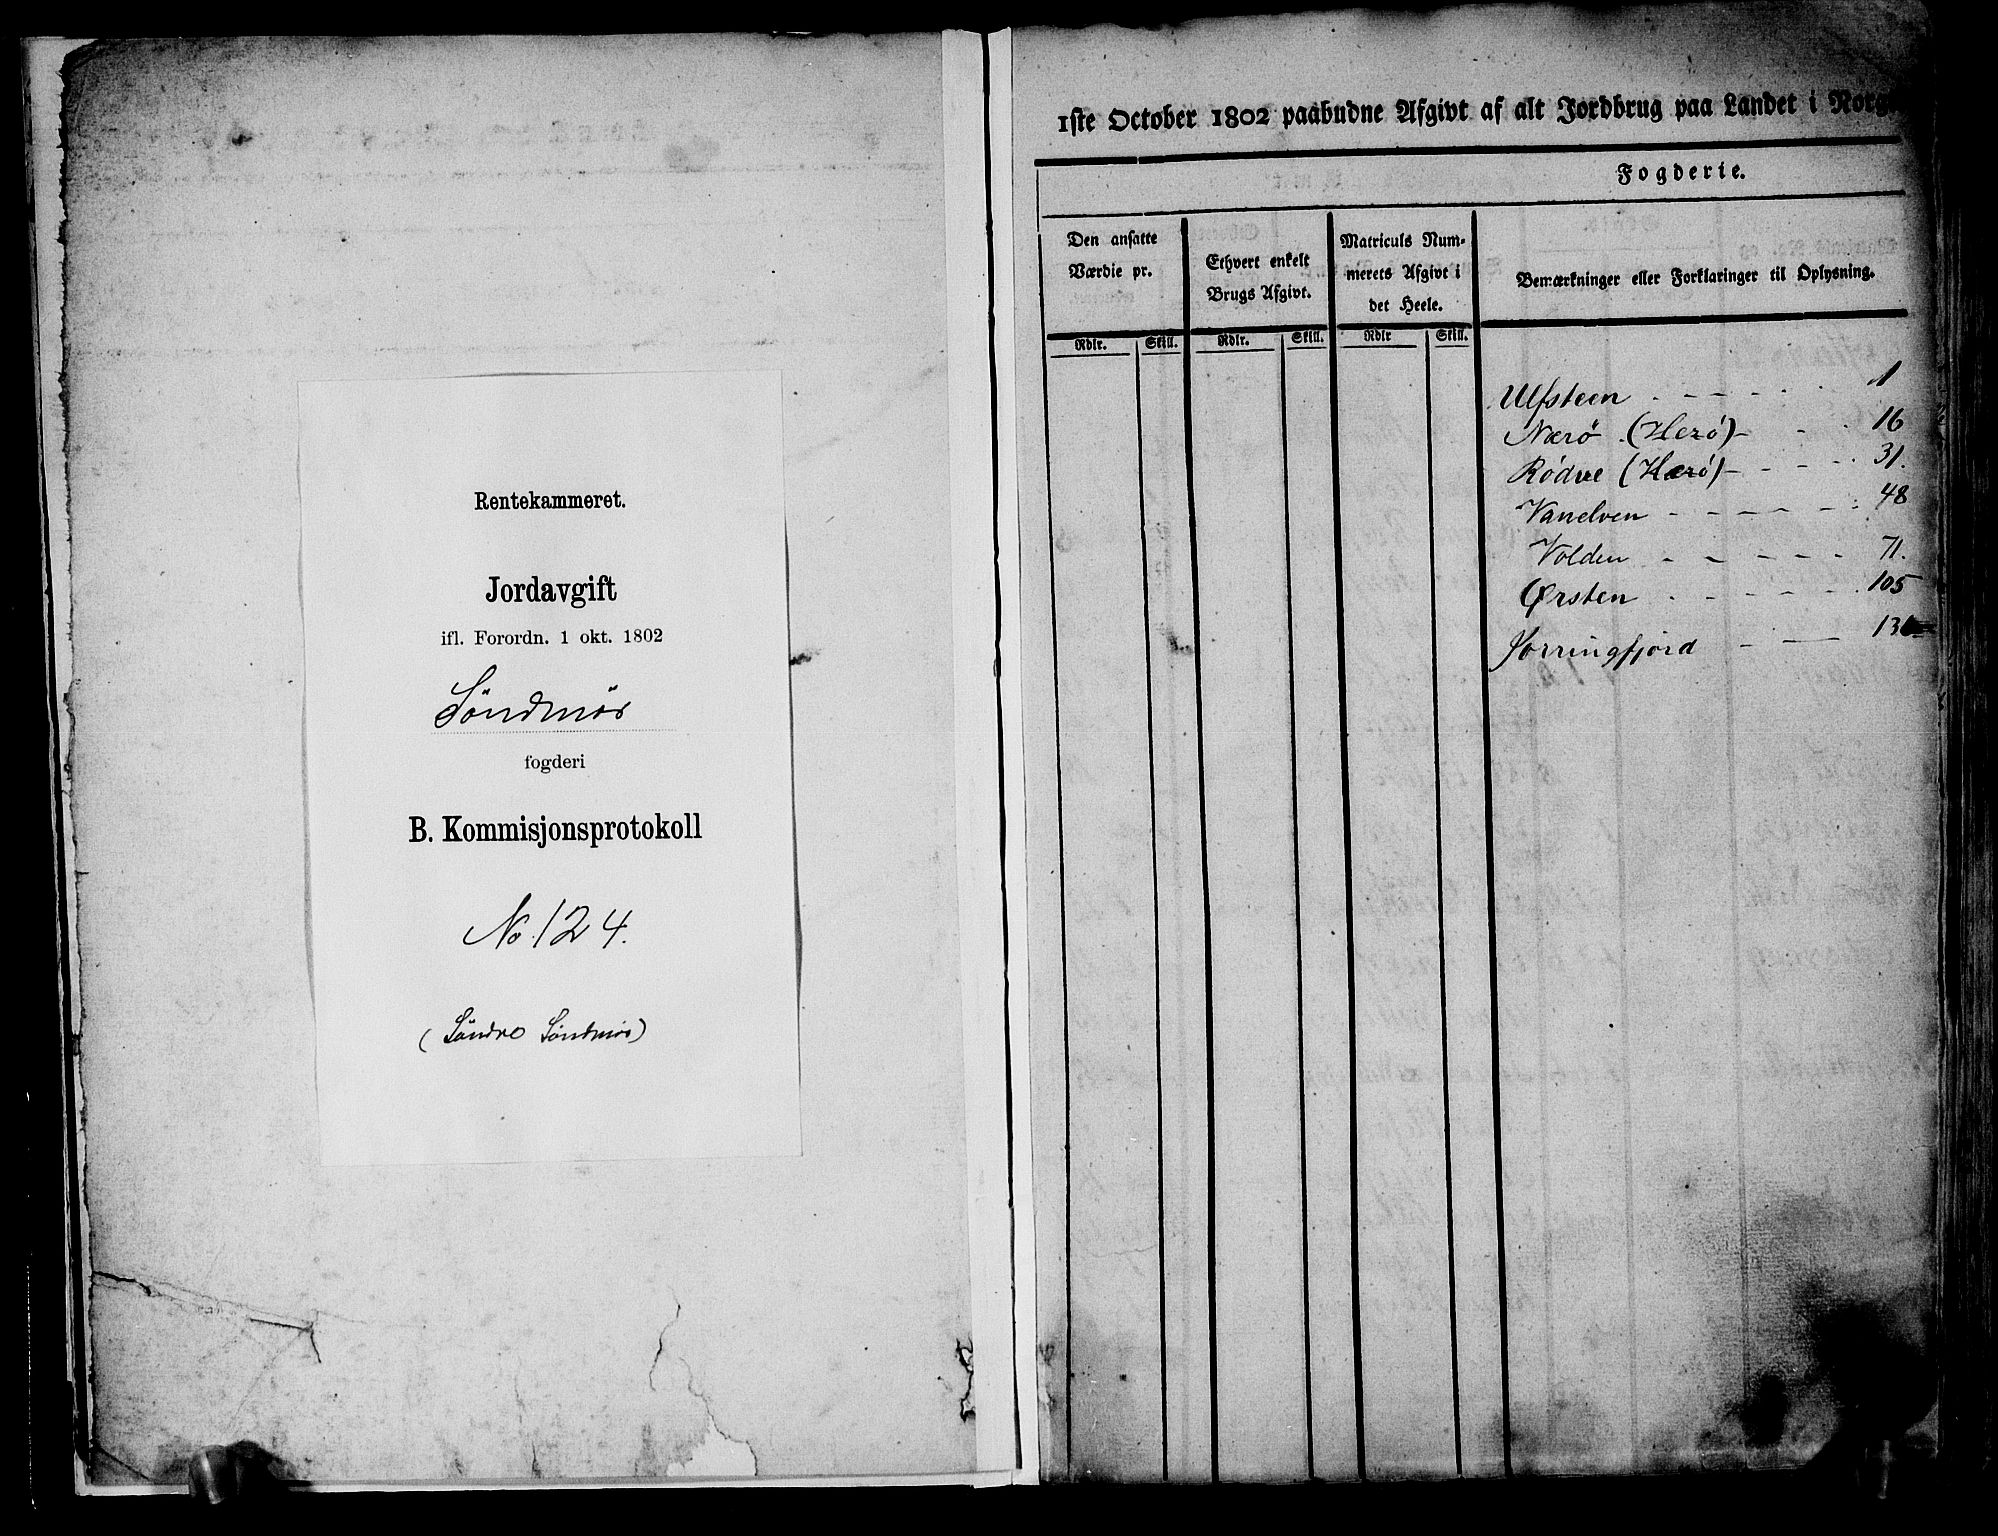 Rentekammeret.
Jordavgift
ifl. Forordn. 1 okt. 1802
Söndmör
fogderi
B. Kommisjonsprotokoll
No. 124.
(Söndre Söndmör)
1ste October 1802 paabudne Afgivt af alt Jordbrug paa Landet i
Fogderie.
Den ansatte
Værdie pr.
Ethvert enkelt
Brugs Afgivt.
Matriculs Num-
merets Afgivt i
det Heele.
Bemærkninger eller Forklaringer til Oplysning.
Rdlr. Skill. Rdlr. Skill. Rdlr Skill.
Ulfsteen - - - - 1
Nærö (Herö) - - - 16
Rödve (Herö) - - - 31.
Vanelven - - - - 48
Volden - - - - 71.
Ørsten - - - - 105
Jorringfjord - -